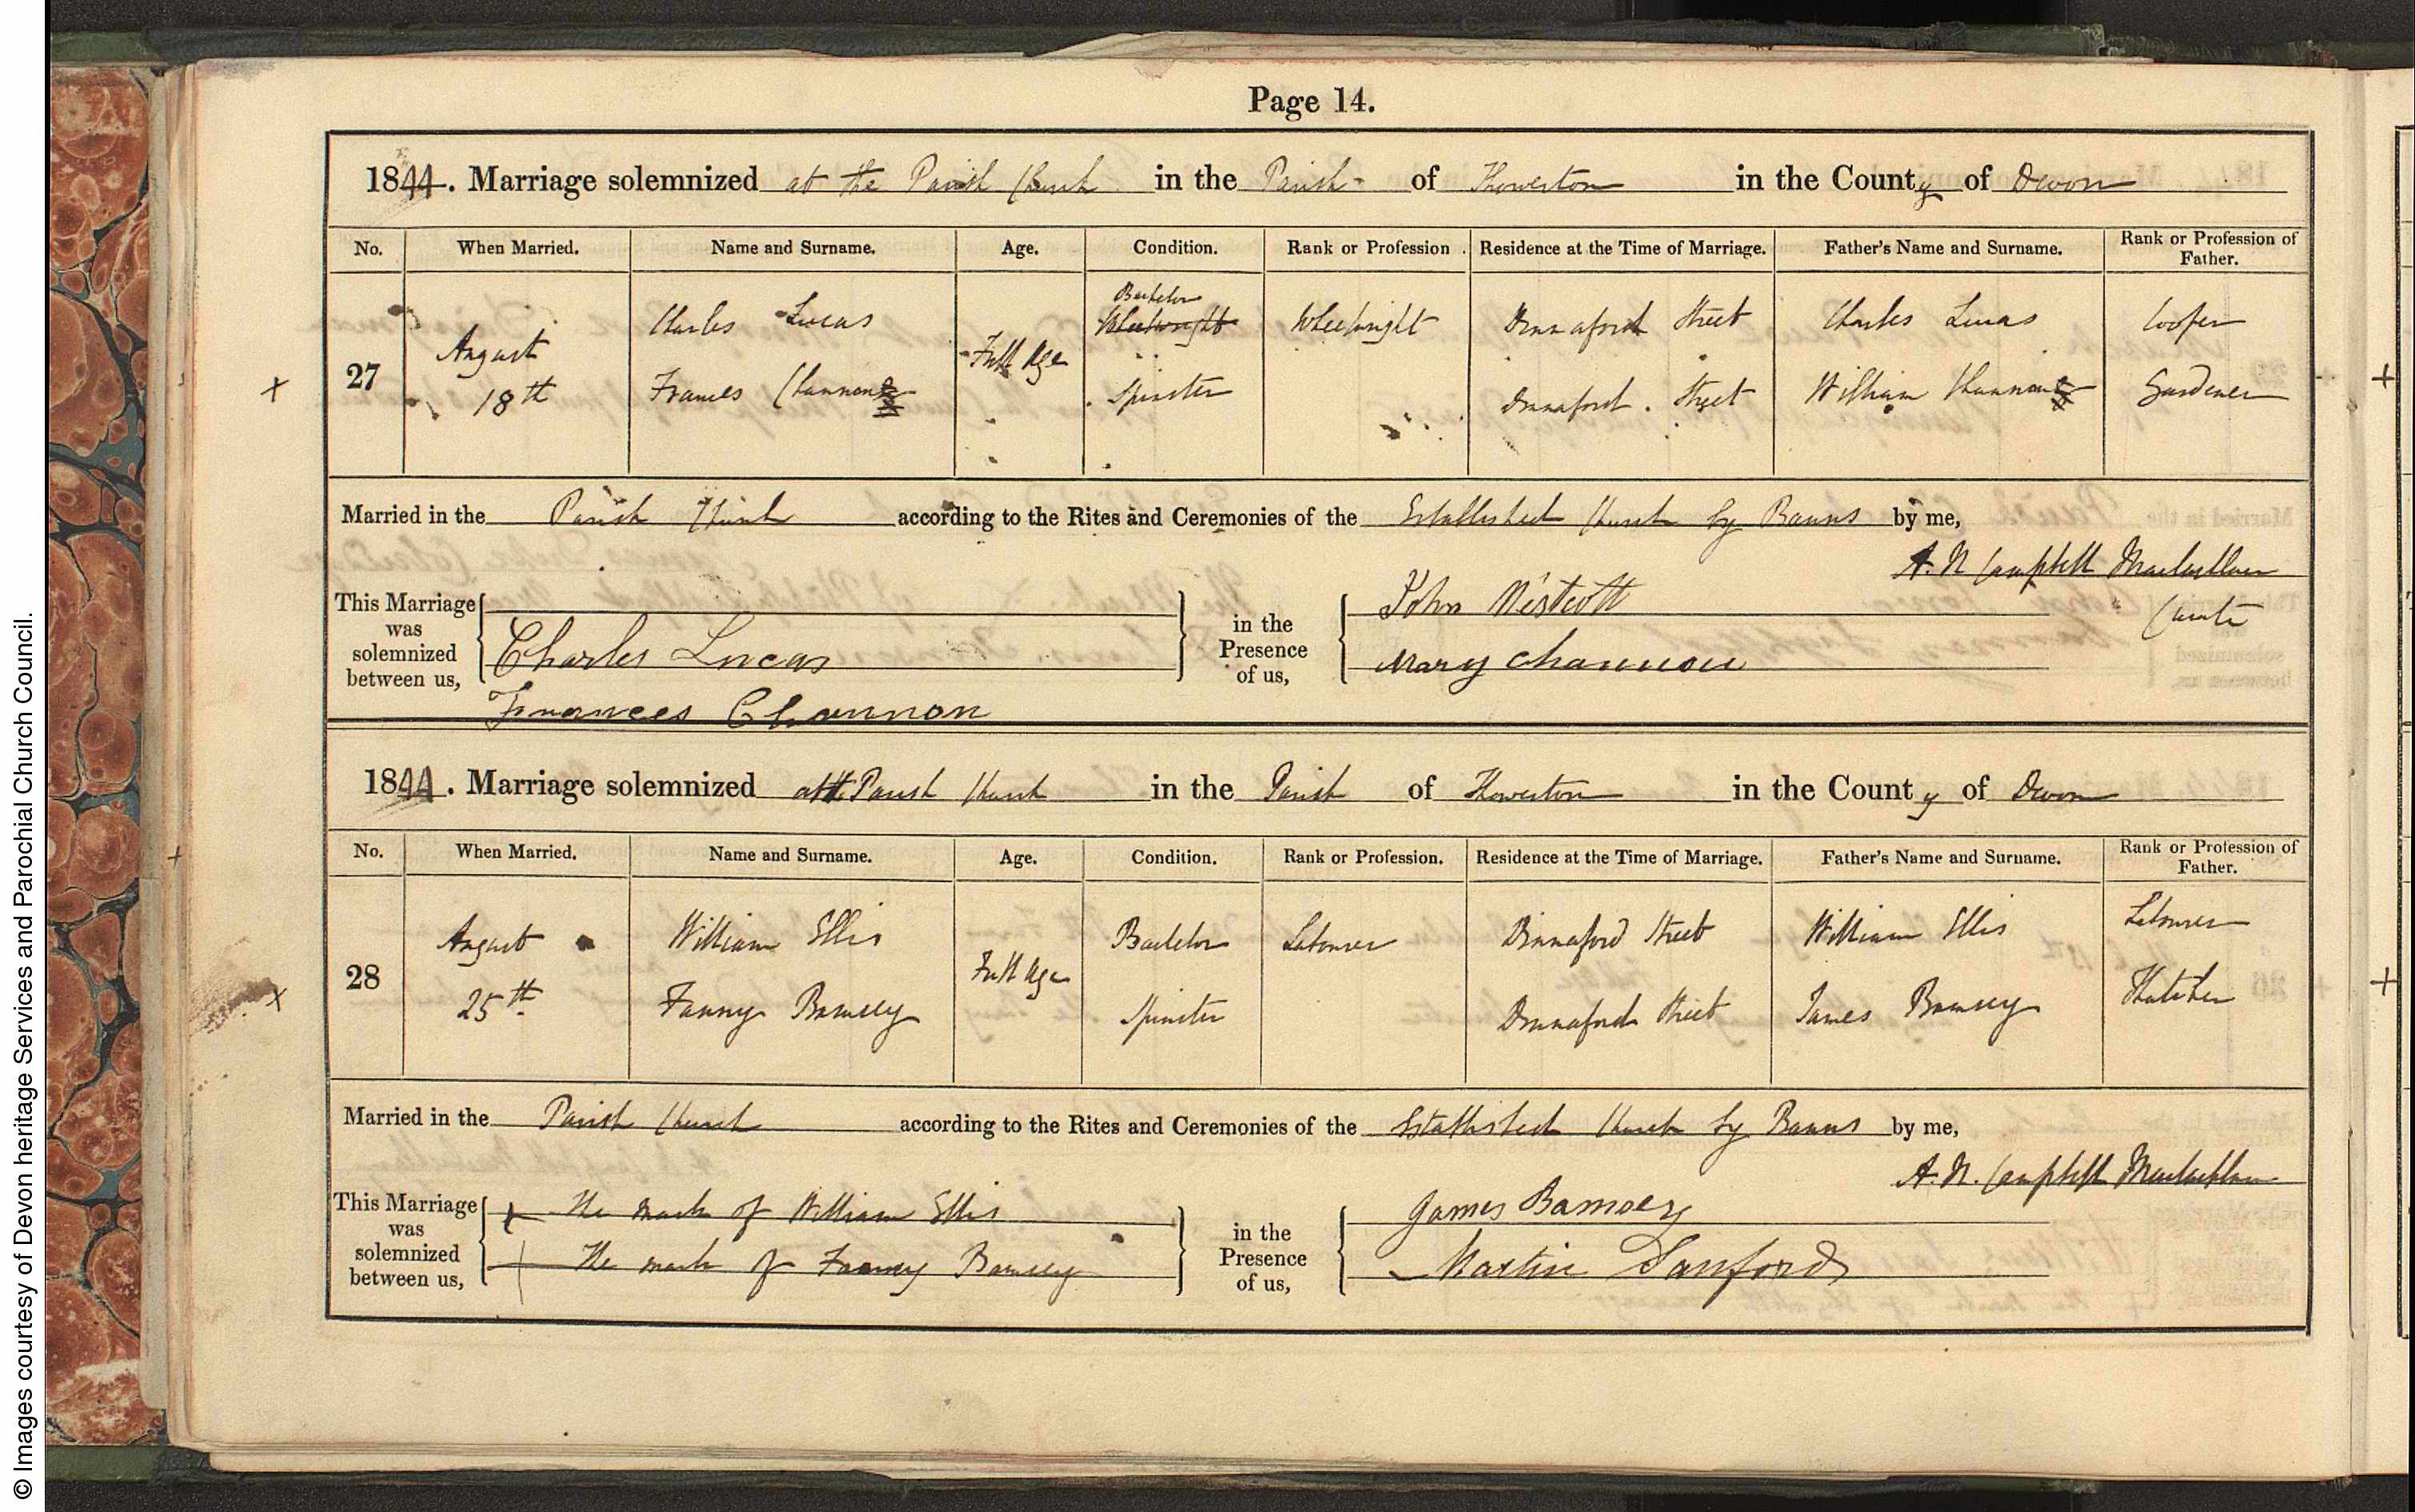 Page 14.
1844. Marriage solemnized at the Parish Church in the Parish of Thoverton in the County of Devon
No. When Married. Name and Surname. Age. Condition. Rank or Profession. Residence at the Time of Marriage. Father's Name and Surname. Rank or Profession of Father.
Bachelor
Charles Lucas Wheelwright Wheelwright Dinnaford Street Charles Lucas Cooper
27 August 18th Full Age
Frances Channon Spinster Dinnaford Street William Channon Gardener
Married in the Parish Church according to the Rites and Ceremonies of the Established Church by Banns by me,
A. N. Campbell Maclachlan
Curate
This Marriage was solemnized between us,
Charles Lucas
Frances Channon
in the Presence of us,
John Westcott
Mary Channon
1844. Marriage solemnized at the Parish Church in the Parish of Thoverton in the County of Devon
No. When Married. Name and Surname. Age. Condition. Rank or Profession. Residence at the Time of Marriage. Father's Name and Surname. Rank or Profession of Father.
William Ellis Bachelor Labourer Dinnaford Street William Ellis Labourer
28 August 25th Full Age
Fanny Bamsey Spinster Dinnaford Street James Bamsey Thatcher
Married in the Parish Church according to the Rites and Ceremonies of the Established Church by Banns by me,
A. N. Campbell Maclachlan
This Marriage was solemnized between us,
x The mark of William Ellis
+ The mark of Fanny Bamsey
in the Presence of us,
James Bamsey
Martin Sanford
© Images courtesy of Devon heritage Services and Parochial Church Council.